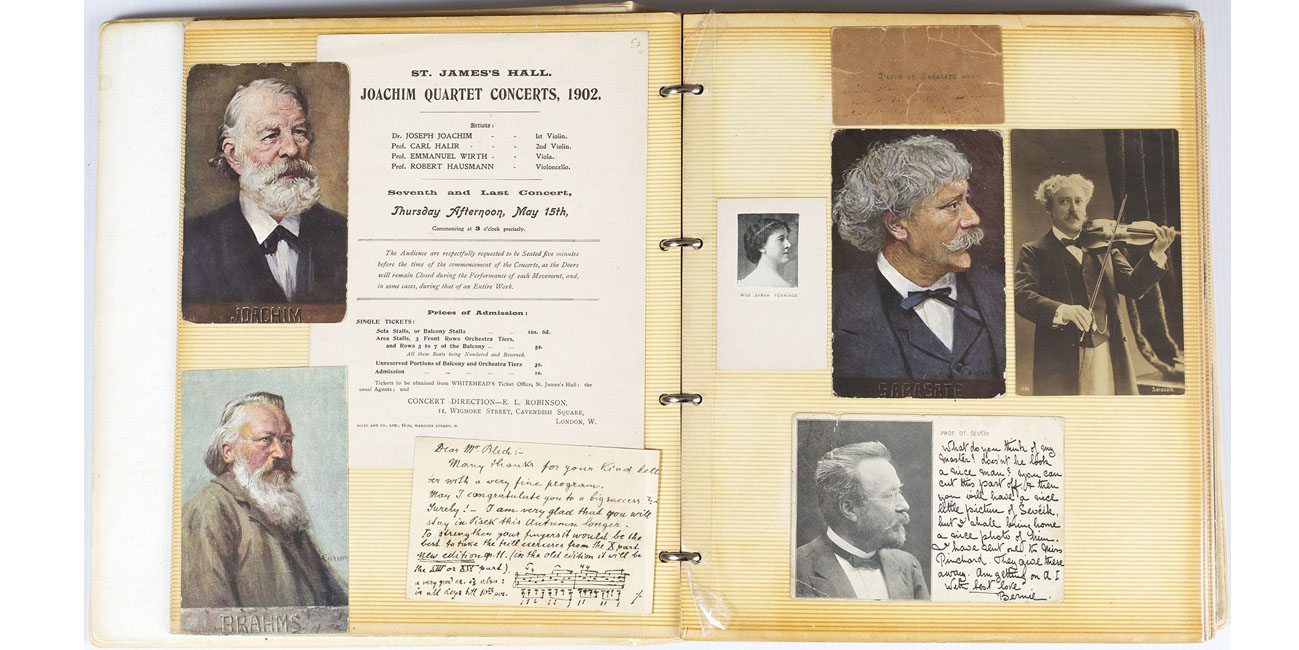 JOACHIM
BRAHMS
5p
ST. JAMES'S HALL.
JOACHIM QUARTET CONCERTS, 1902.
Artists:
Dr. JOSEPH JOACHIM - - 1st Violin.
Prof. CARL HALIR - - - 2nd Violin.
Prof. EMMANUEL WIRTH - - Viola.
Prof. ROBERT HAUSMANN - Violoncello.
Seventh and Last Concert,
Thursday Afternoon, May 15th,
Commencing at 3 o'clock precisely.
The Audience are respectfully requested to be Seated five minutes
before the time of the commencement of the Concerts, as the Doors
will remain Closed during the Performance of each Movement, and,
in some cases, during that of an Entire Work.
Prices of Admission:
SINGLE TICKETS:
Sofa Stalls, or Balcony Stalls ... ... 10s. 6d.
Area Stalls, 3 Front Rows Orchestra Tiers,
and Rows 3 to 7 of the Balcony ... ... 5s.
All these Seats being Numbered and Reserved.
Unreserved Portions of Balcony and Orchestra Tiers 3s.
Admission ... ... ... ... ... ... 1s.
Tickets to be obtained from WHITEHEAD'S Ticket Office, St. James's Hall; the
usual Agents; and
CONCERT DIRECTION—E. L. ROBINSON,
11, WIGMORE STREET, CAVENDISH SQUARE,
LONDON, W.
Dear Mr. Blech:-
Many thanks for your kind lett
er with a very fine program.
May I congratulate you to a big success?-
Surely! - I am very glad that you will
stay in Pisek this Autumn longer.
To strengthen your fingers it would be the
best to take the trill exercises from the X part
new edition op. 11. (in the old edition it will be
the XIII or XIV part).
a very good ex. is also:
in all keys till 10th pos.
PABLO DE SARASATE
MISS SARAH FENNINGS
SARASATE
Sarasate.
PROF. OT. ŠEVČIK
What do you think of my
master? Doesn't he look
a nice man? You can
cut this part off & then
you will have a nice
little picture of Sevcik,
but I shall bring home
a nice photo of him.
I have sent one to Miss
Pinchard. They give these
away. Am getting on A I
With best love
Bernie.